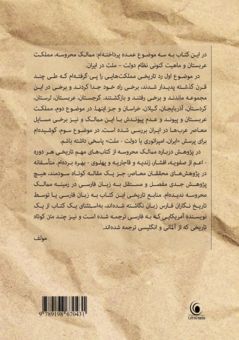 در این کتاب به سه موضوع عمده پرداخته‌ام: ممالک محروسه، مملکت
عربستان و ماهیت کنونی نظام دولت - ملت در ایران.
در موضوع اول رد تاریخی مملکت‌هایی را پی گرفته‌ام که طی چند
قرن گذشته پدیدار شدند، برخی راه خود جدا کردند و برخی در این
مجموعه ماندند و برخی رفتند و بازگشتند. گرجستان، عربستان، لرستان،
کردستان، آذربایجان، گیلان، خراسان و جز اینها. در موضوع دوم، مملکت
عربستان و پیوند و عدم پیوندش با این ممالک و نیز برخی مسایل
معاصر عرب‌ها در ایران بررسی شده است. در موضوع سوم، کوشیده‌ام
برای پرسش «ایران، امپراتوری یا دولت - ملت» پاسخی داشته باشم.
در پژوهش درباره ممالک محروسه از کتاب‌های مهم تاریخی هر دوره
- اعم از صفویه، افشار، زندیه و قاجاریه و پهلوی - بهره برده‌ام. متأسفانه
در پژوهش‌های محققان معاصر، جز یک مقاله کوتاه سودمند، هیچ
پژوهش جدی مفصل و مستقل به زبان فارسی در زمینه ممالک
محروسه ندیده‌ام. منابع تاریخی این کتاب به زبان فارسی یا توسط
تاریخ نگاران فارس زبان نگاشته شده‌اند، به‌استثنای یک کتاب از یک
نویسنده آمریکایی که به فارسی ترجمه شده است و نیز چند متن کوتاه
تاریخی که از آلمانی و انگلیسی ترجمه شده‌اند.
مؤلف
9 789198 670431